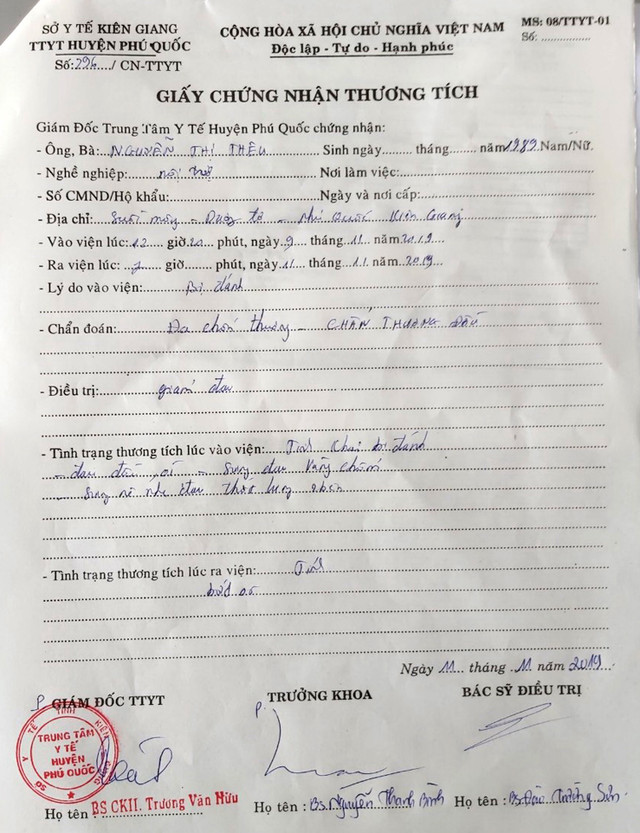 SỞ Y TẾ KIÊN GIANG
TTYT HUYỆN PHÚ QUỐC
Số:296..../ CN-TTYT
CỘNG HÒA XÃ HỘI CHỦ NGHĨA VIỆT NAM
Độc lập - Tự do - Hạnh phúc
MS: 08/TTYT-01
Số: ..............
GIẤY CHỨNG NHẬN THƯƠNG TÍCH
Giám Đốc Trung Tâm Y Tế Huyện Phú Quốc chứng nhận:
- Ông, Bà: NGUYỄN THỊ THÊU Sinh ngày........ tháng........ năm 1989 Nam/Nữ.
- Nghề nghiệp: nội trợ Nơi làm việc:
- Số CMND/Hộ khẩu: Ngày và nơi cấp:
- Địa chỉ: Suối mây - Dương tơ - Phú Quốc Kiên Giang
- Vào viện lúc: 12 giờ 20 phút, ngày 9 tháng 11 năm 2019
- Ra viện lúc: 7 giờ........ phút, ngày 11 tháng 11 năm 2019
- Lý do vào viện: Bị đánh
- Chẩn đoán: Đa chấn thương - CHẤN THƯƠNG ĐẦU
- Điều trị: giảm đau
- Tình trạng thương tích lúc vào viện: Tỉnh Khai bị đánh
- đau đầu, - Sưng đau vùng
- Sưng nề nhẹ đau lưng
- Tình trạng thương tích lúc ra viện: Tỉnh
Ngày 11 tháng 11 năm 2019
P GIÁM ĐỐC TTYT
TRƯỞNG KHOA
BÁC SỸ ĐIỀU TRỊ
P.
TRUNG TÂM
Y TẾ
HUYỆN
PHÚ QUỐC
Họ tên BS CKII. Trương Văn Hữu
Họ tên : Bs. Nguyễn Thanh Bình
Họ tên : Bs. Đào Trường Sơn